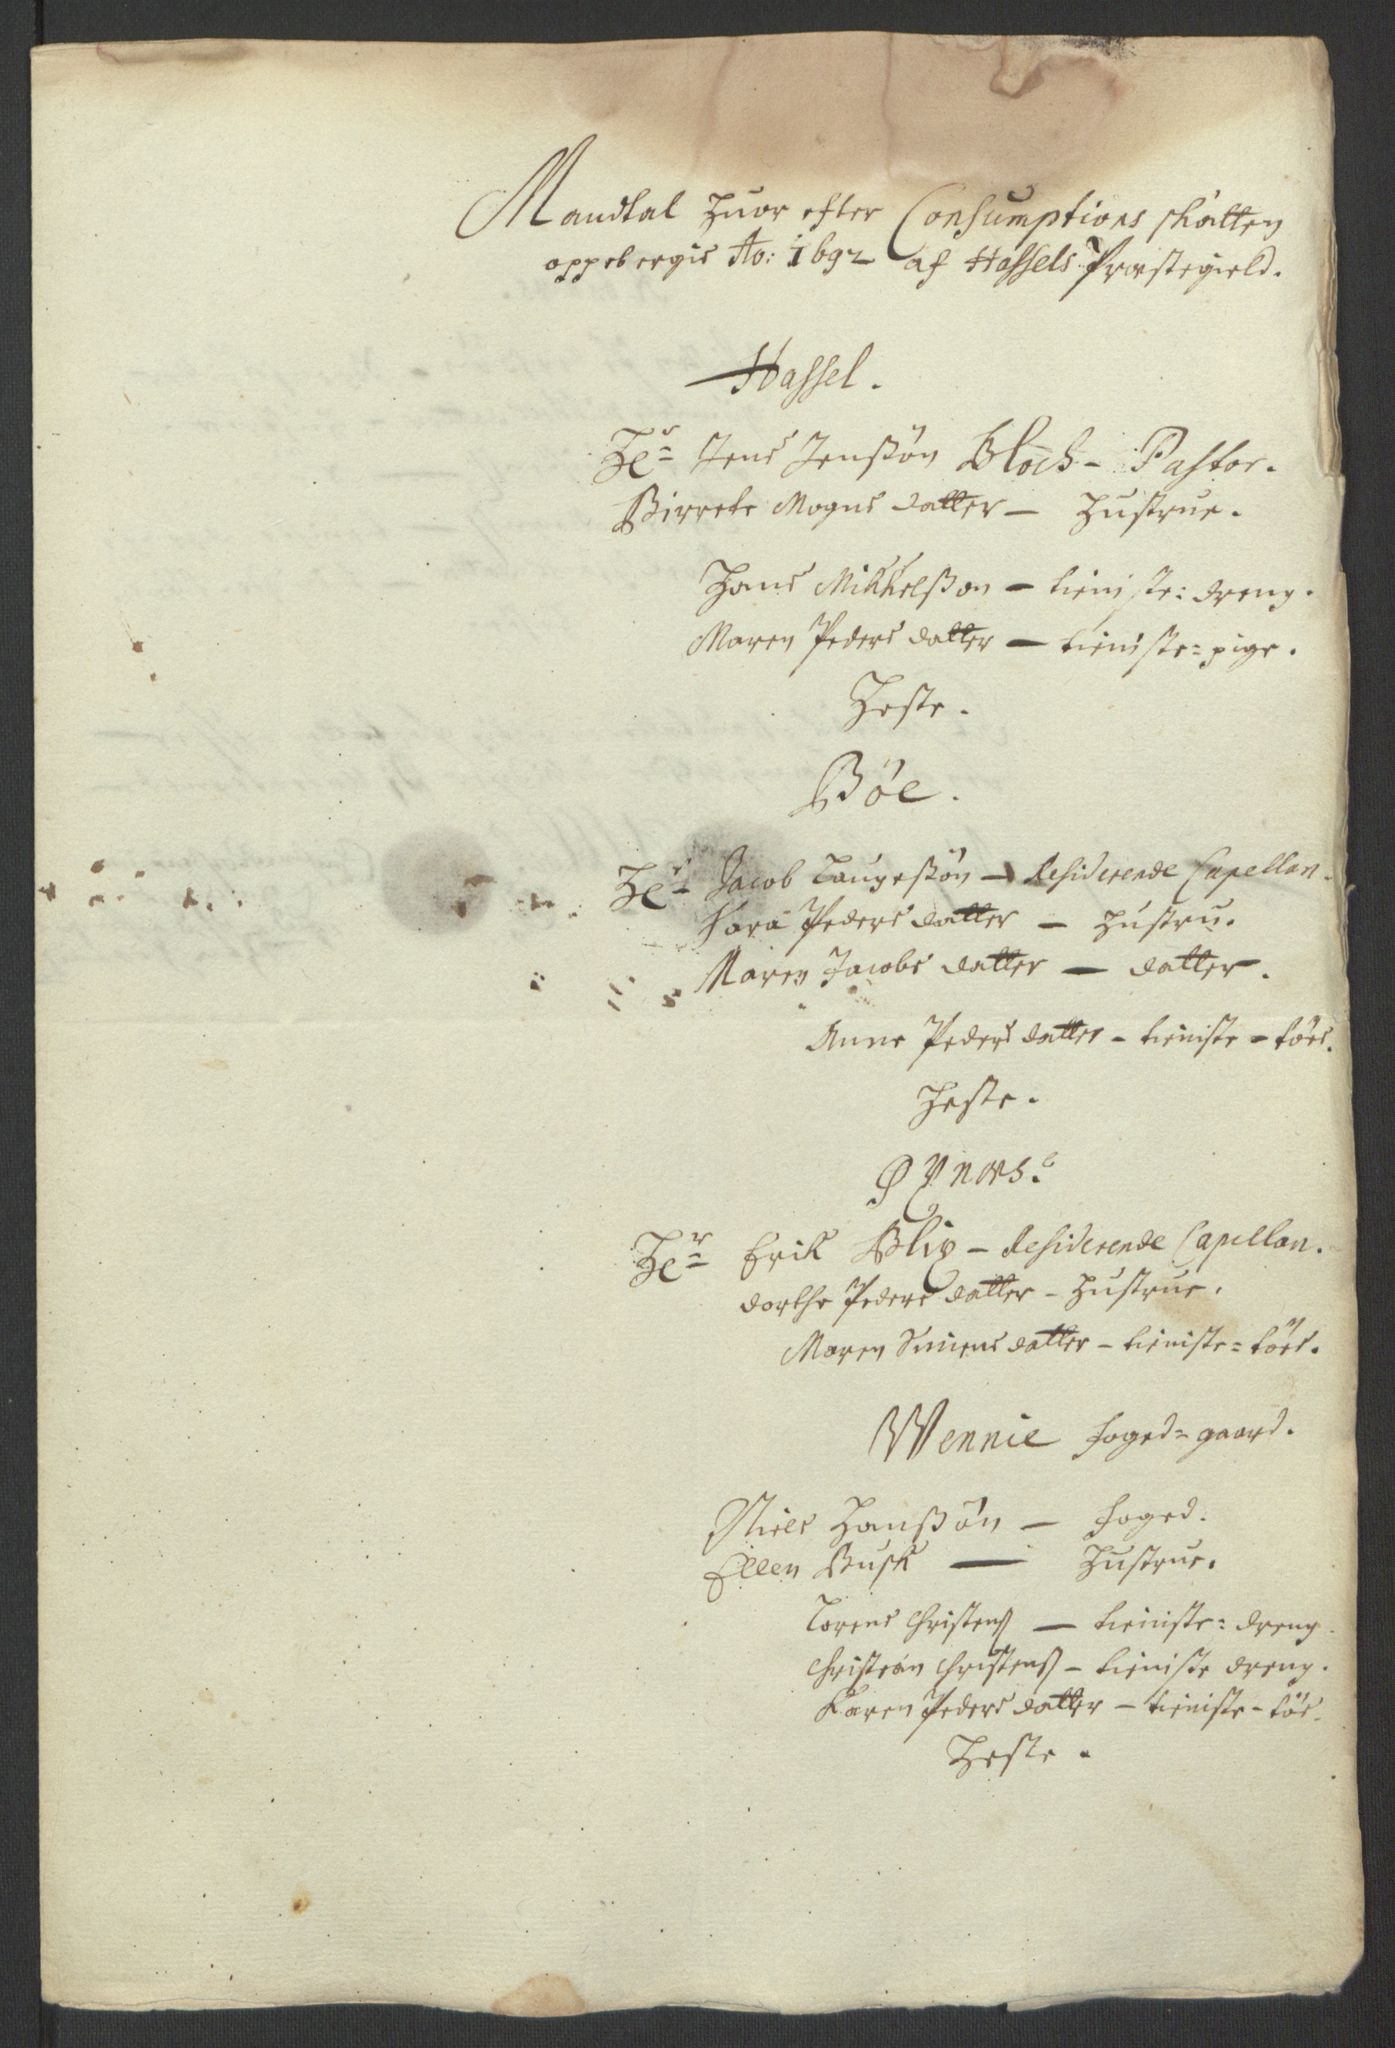 Mandtal huor efter Consumptions skatten
oppebergis Ao: 1692 af Hassels Præstegield.
Hassel.
Hr Jens Jenßøn Bloch - Pastor.
Birrete Mogns datter - hustrue.
Hans Mikkelßøn - tieniste: dreng.
Maren Peders datter - tieniste=pige.
Heste.
Bøe.
Hr Jacob Laugeßøn - Residerende Capellan.
Sara Peders datter - hustru.
Maren Jacobs datter - datter.
Anne Peders datter - tieniste - tøes.
Heste.
Øÿnæs.
Hr Erik Blix - Residerende Capellan.
dorthe Peders datter - hustrue.
Maren Simens datter - tieniste= tøes.
Wennie foged=gaard.
Niels Hanßøn - foged.
Ellen Busk - Hustrue.
Lorens Christens - tieniste= dreng.
Christian Christens - tieniste dreng.
Karen Peders datter - tieniste - tøes.
Heste.